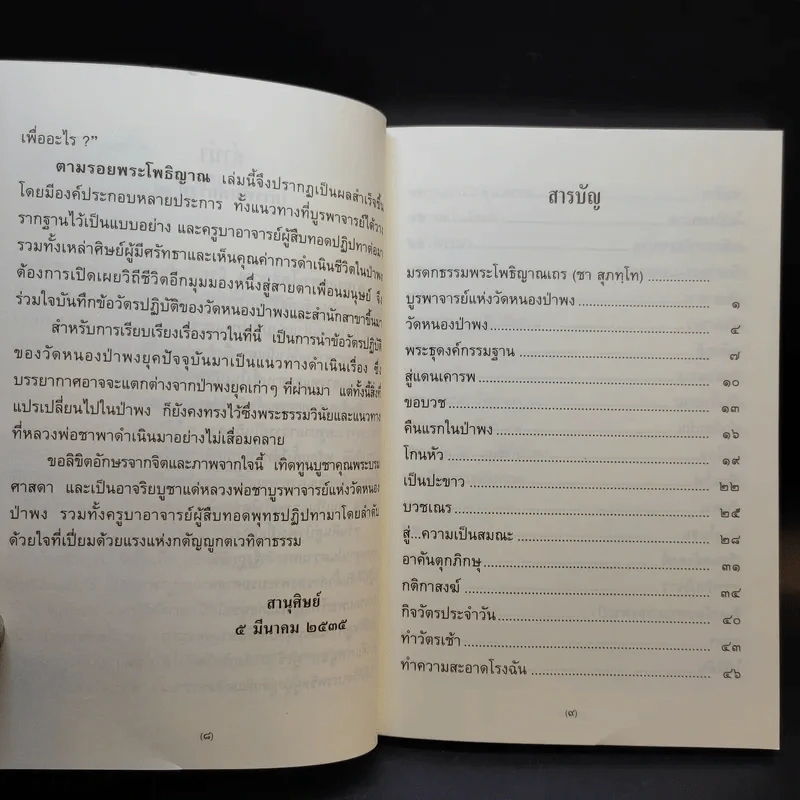 เพื่ออะไร ?”
ตามรอยพระโพธิญาณ เล่มนี้จึงปรากฏเป็นผลสำเร็จขึ้น
โดยมีองค์ประกอบหลายประการ ทั้งแนวทางที่บูรพาจารย์ได้วาง
รากฐานไว้เป็นแบบอย่าง และครูบาอาจารย์ผู้สืบทอดปฏิปทาต่อมา
รวมทั้งเหล่าศิษย์ผู้มีศรัทธาและเห็นคุณค่าการดำเนินชีวิตในป่าพง
ต้องการเปิดเผยวิถีชีวิตอีกมุมมองหนึ่งสู่สายตาเพื่อนมนุษย์ จึง
ร่วมใจบันทึกข้อวัตรปฏิบัติของวัดหนองป่าพงและสำนักสาขาขึ้นมา
สำหรับการเรียบเรียงเรื่องราวในที่นี้ เป็นการนำข้อวัตรปฏิบัติ
ของวัดหนองป่าพงยุคปัจจุบันมาเป็นแนวทางดำเนินเรื่อง ซึ่ง
บรรยากาศอาจจะแตกต่างจากป่าพงยุคเก่าๆ ที่ผ่านมา แต่ทั้งนี้สิ่งที่
แปรเปลี่ยนไปในป่าพง ก็ยังคงทรงไว้ซึ่งพระธรรมวินัยและแนวทาง
ที่หลวงพ่อชาพาดำเนินมาอย่างไม่เสื่อมคลาย
ขอลิขิตอักษรจากจิตและภาพจากใจนี้ เทิดทูนบูชาคุณพระบรม
ศาสดา และเป็นอาจริยบูชาแด่หลวงพ่อชาบูรพาจารย์แห่งวัดหนอง
ป่าพง รวมทั้งครูบาอาจารย์ผู้สืบทอดพุทธปฏิปทามาโดยลำดับ
ด้วยใจที่เปี่ยมด้วยแรงแห่งกตัญญูกตเวทิตาธรรม
สานุศิษย์
๕ มีนาคม ๒๕๓๕
(๘)
สารบัญ
มรดกธรรมพระโพธิญาณเถร (ชา สุภทฺโท) ....................
บูรพาจารย์แห่งวัดหนองป่าพง .................... ๑
วัดหนองป่าพง .................... ๔
พระธุดงค์กรรมฐาน .................... ๗
สู่แดนเคารพ .................... ๑๐
ขอบวช .................... ๑๓
คืนแรกในป่าพง .................... ๑๖
โกนหัว .................... ๑๙
เป็นปะขาว .................... ๒๒
บวชเณร .................... ๒๕
สู่...ความเป็นสมณะ .................... ๒๘
อาคันตุกภิกษุ .................... ๓๑
กติกาสงฆ์ .................... ๓๔
กิจวัตรประจำวัน .................... ๔๐
ทำวัตรเช้า .................... ๔๓
ทำความสะอาดโรงฉัน .................... ๔๖
(๙)